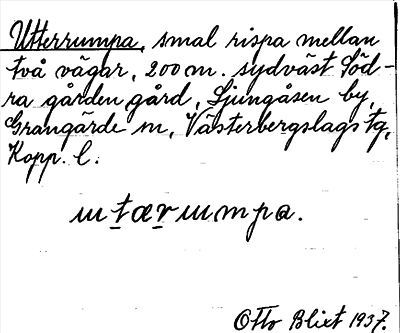 Utterrumpa, smal rispa mellan
två vägar, 200 m. sydväst Söd-
ra gården gård, Ljungåsen by,
Grangärde sn, Västerbergslags tg,
Kopp. l.
utærumpa.
Otto Blixt 1937.